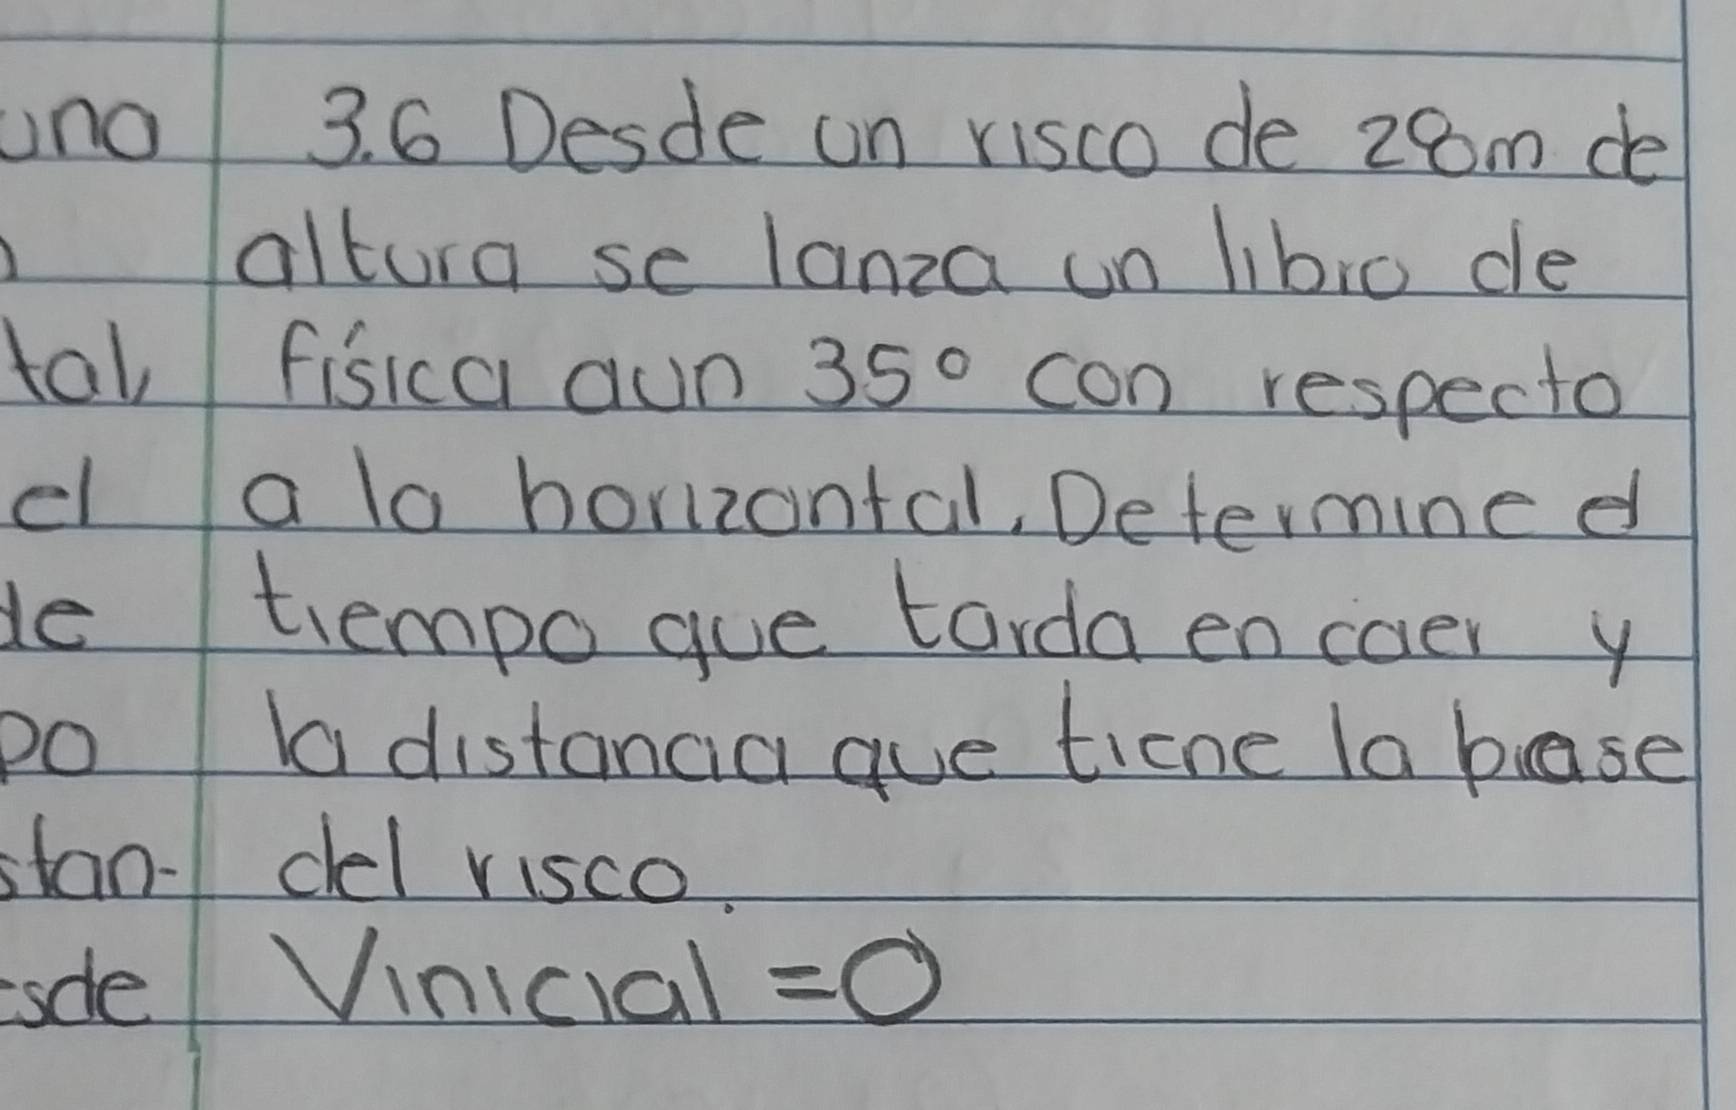 uno 3.6 Desde un risco de 28m de
altura se lanza un libro de
tal, física aun 35° con respecto
el a la horizontal. Determine el
de tiempo que tarda en caer y
po la distancia que tiene la base
stan- del risco.
esde Vinicial = 0